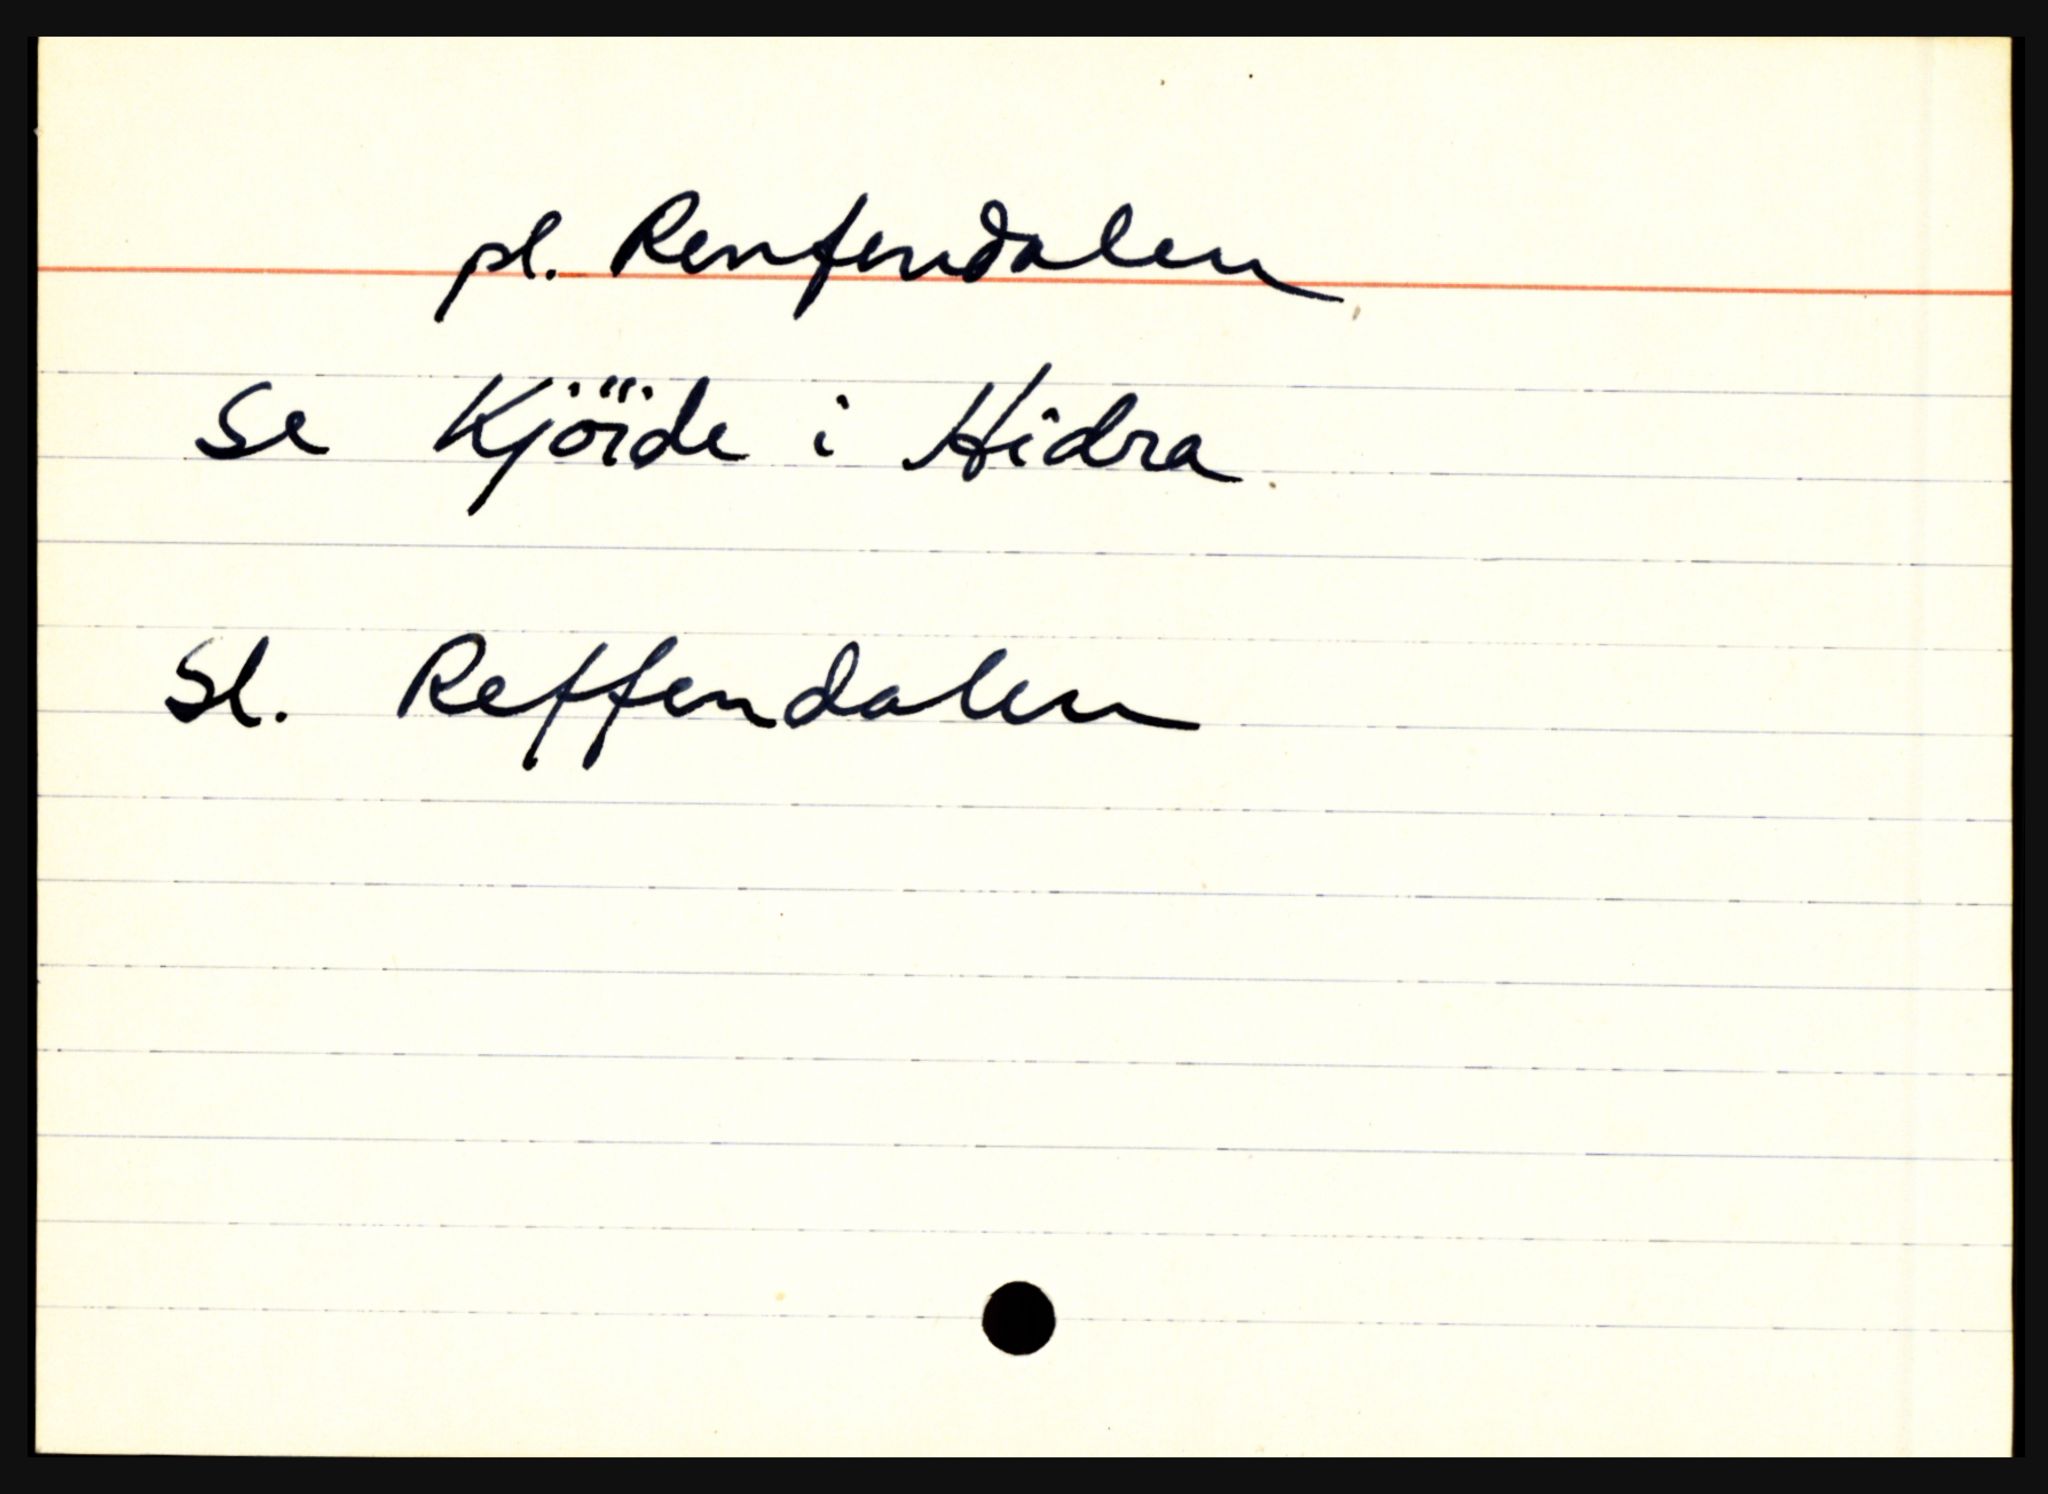 pl. Renfendalen
Se Kjöide i Hidra
Sl. Reffendalen